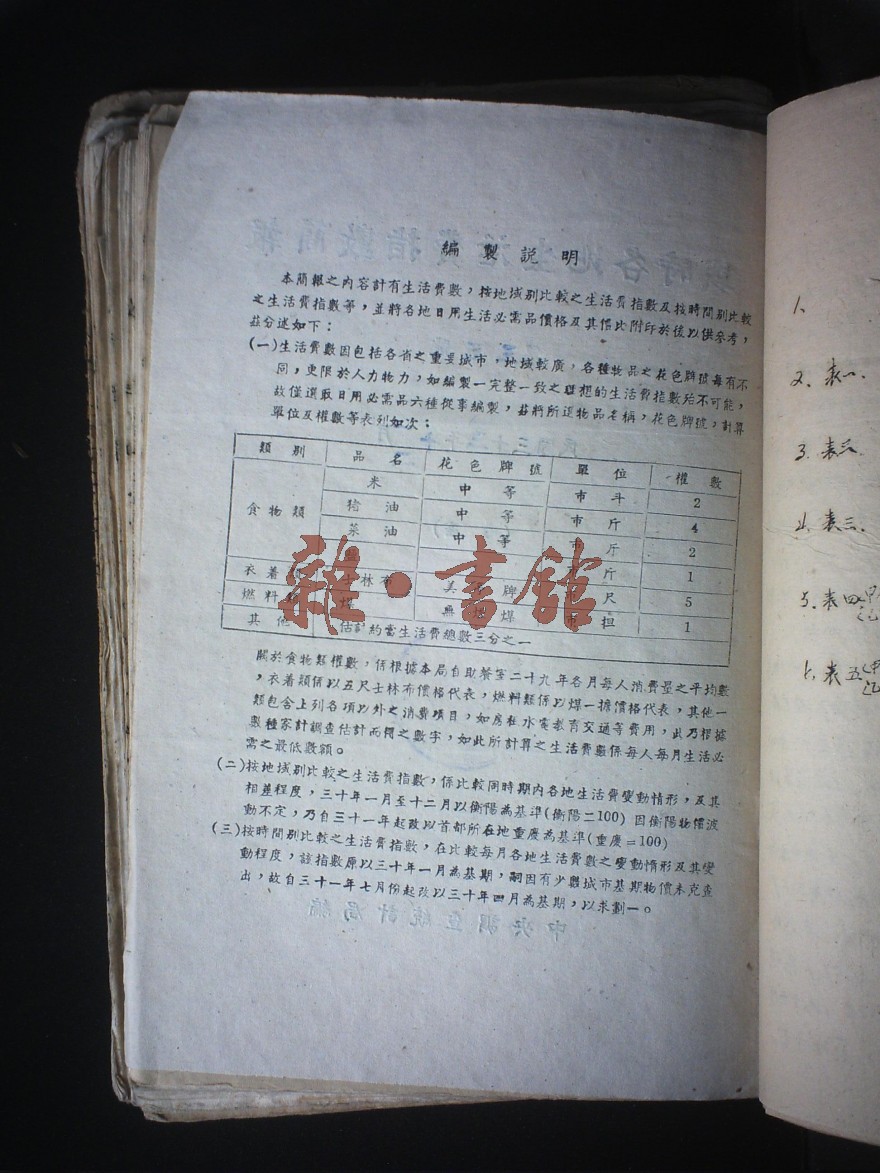 編製説明
本簡報之内容計有生活費數，按地域别比較之生活費指數及按時間别比較
之生活費指數等，並將各地日用生活必需品價格及其係比附印於後以供參考，
茲分述如下：
(一)生活費數因包括各省之重要城市，地域較廣，各種物品之花色牌號每有不
同，更限於人力物力，如編製一完整一致之理想的生活費指數殆不可能，
故僅選取日用必需品六種從事編製，茲將所選物品名稱，花色牌號，計算
單位及權數等表列如次：
類别 品名 花色牌號 單位 權數
食物類 米 中等 市斗 2
猪油 中等 市斤 4
菜油 中等 市斤 2
斤 1
衣着 士林布 美 牌 尺 5
燃料 煤 無 煤 市担 1
其他 估計約當生活費總數三分之一
關於食物類權數，係根據本局自助餐室二十九年各月每人消費量之平均數
，衣着類係以五尺士林布價格代表，燃料類係以煤一担價格代表，其他一
類包含上列各項以外之消費項目，如房租水電教育交通等費用，此乃根據
數種家計調查估計而得之數字，如此所計算之生活費數係每人每月生活必
需之最低數額。
(二)按地域别比較之生活費指數，係比較同時期内各地生活費變動情形，及其
相差程度，三十年一月至十二月以衡陽為基準(衡陽=100)因衡陽物價波
動不定，乃自三十一年起改以首都所在地重慶為基準(重慶=100)
(三)按時間别比較之生活費指數，在比較每月各地生活費數之變動情形及其變
動程度，該指數原以三十年一月為基期，嗣因有少數城市基期物價未克查
出，故自三十一年七月份起改以三十年四月為基期，以求劃一。
中央調查統計局編
雜·書館
1.
2、表一、
3、表二、
4、表三、
5、表四
6、表五